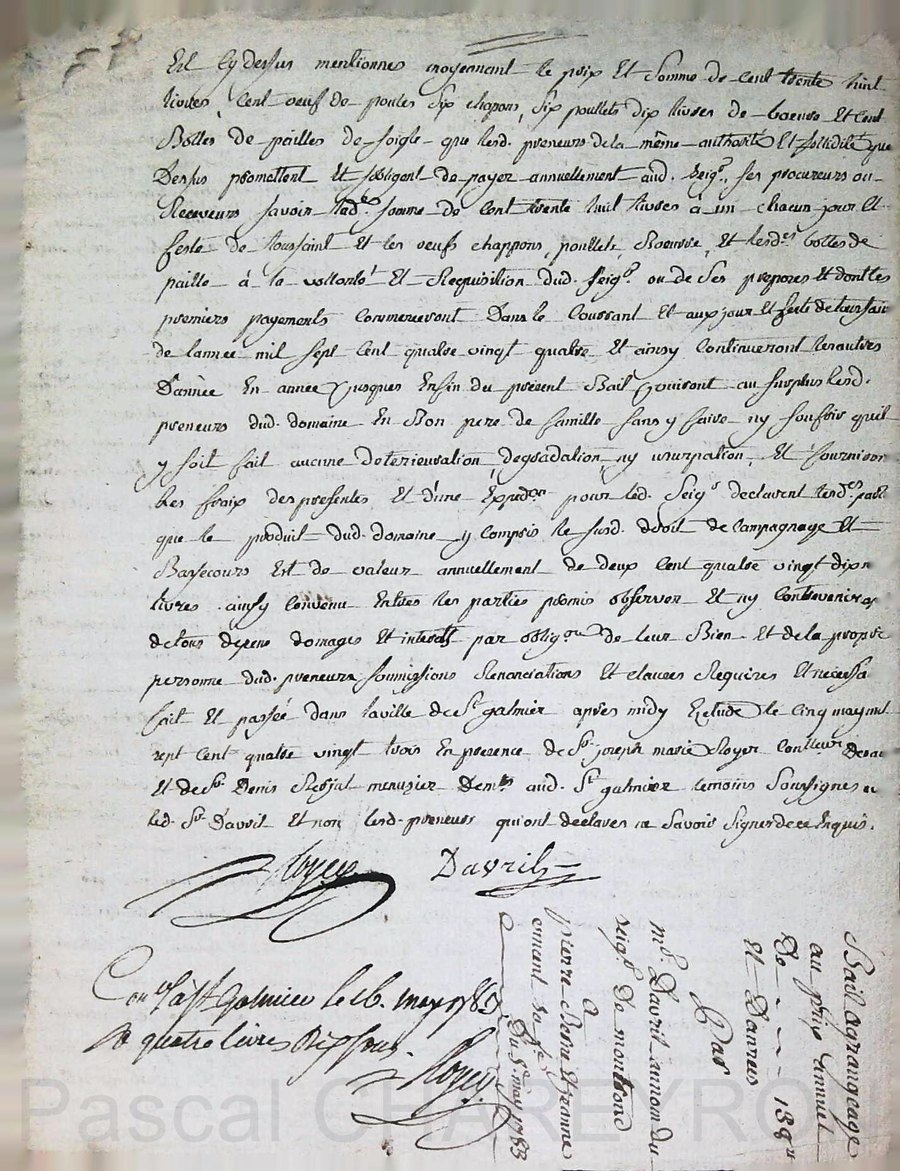 Est cy dessus mentionnés moyennant le prix Et Somme de Cent trente huit
livres, Cent oeuf de poules Six chapons, Six poullets dix livres de boeure Et Cent
Bottes de pailles de soigle que lesd. preneurs de la même authorité Et sollidité que
Dessus promettent Et sobligent de payer annuellement aud. Seigr. ses procureurs ou
Receveurs savoir lade. somme de Cent trente huit livres à un chacun jour Et
feste de toussaint Et les oeufs chappons, poullets, Boeurre, Et lesdes. bottes de
paille à la vollonté Et Requisition dud. seigr. ou de Ses preposés Et dont les
premiers payements Commenceront Dans le Courrant Et aux jour Et feste de toussain
de lannée mil sept Cent quatre vingt quatre Et ainsy Continueront les autres
D'année En année jusques Enfin du présent Bail jouiront au surplus lesd.
preneurs dud. domaine En Bon pere de famille sans y faire ny soufrir quil
y soit fait aucune deterieuration, degradation, ny usurpation, Et fourniron
les fraix des presentes Et d'une Expedon pour led. Seigr declarent lesdes. part
que le produit dud. domaine y compris le susd. droit de Campagnage Et
Bassecours Est de valeur annuellement de deux Cent quatre vingt dix
livres. ainsy Convenu Entres les parties promis observer Et ny Contrevenir
de tous depens domages Et interets par obligon de leur Bien Et de la propre
personne dud. preneurs soumissions Renonciations Et clauses Requises Et necessa
fait Et passée dans la ville de St galmier après midy Etude le Cinq may mil
sept Cent quatre vingt trois En presence de Sr. joseph marie Royer
Et de Sr. Denis menusier Demt aud. St galmier temoins Soussignes
led. Sr. Davril Et non lesd. preneurs qui ont declarés ne Savoir Signer de ce Enquis.
Royer Davril
St Galmier le 16. may 1783
quatre livres dix sous.
Royer
Bail a grangeage
au prix annuel
De - - - - 138 tt
Et Danrées
Par
mr. Davril au nom du
seigr. De montrond
a
pierre Et jeanne
sa fe.
Du 5e. may 1783
Pascal CHAREYRON